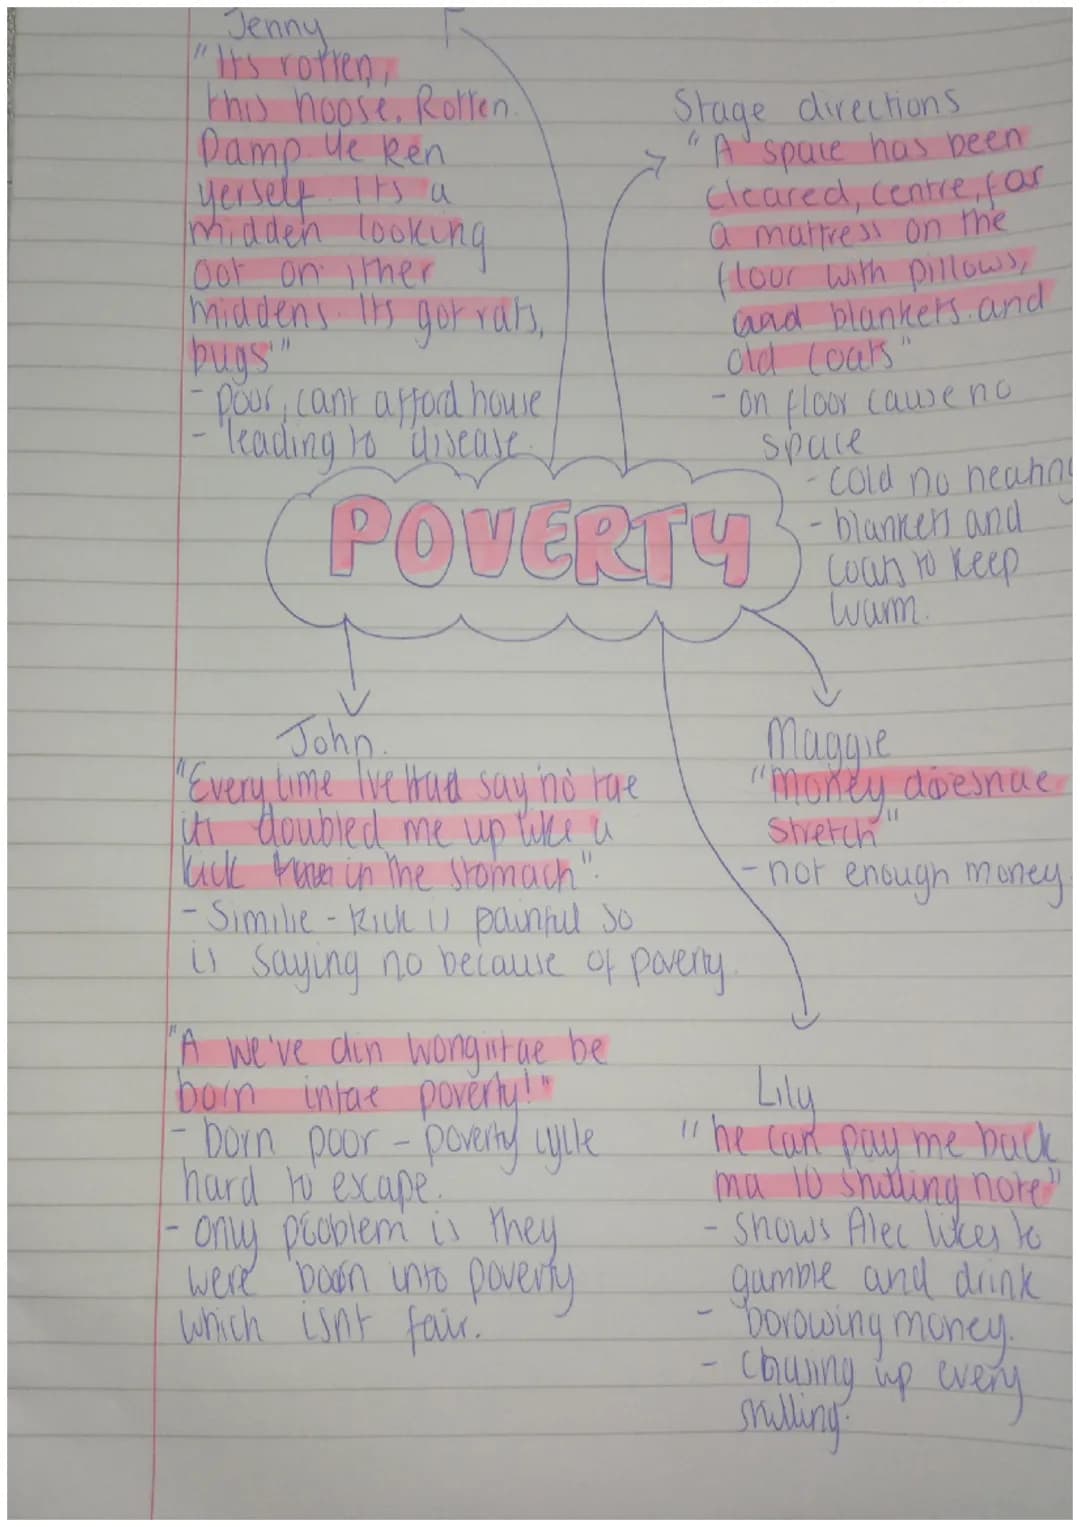 Jenny
"Its rotten,
this hoose. Rotten.
Damp. Ye ken
yerself. Its a
midden looking
oot on ither
middens. Its got rats,
bugs"
- poor, cant afford house
- leading to disease.
Stage directions
"A space has been
cleared, centre, for
a mattress on the
floor with pillows,
and blankets and
old coats"
- on floor cause no
space
- cold no heating
- blankets and
coats to keep
warm.
POVERTY
John.
"Every time I've had say no tae
its doubled me up like a
kick in the stomach".
- Similie - kick is painful so
is saying no because of poverty.
"A we've din wong is tae be
born intae poverty!"
- born poor - poverty cycle
hard to exape.
- only problem is they
were born into poverty
which isnt fair.
Maggie
"Money doesnae
stretch"
- not enough money
Lily
"he can pay me back
ma 10 shilling note"
- shows Alec likes to
gamble and drink
- borowing money.
- chasing up every
shilling.